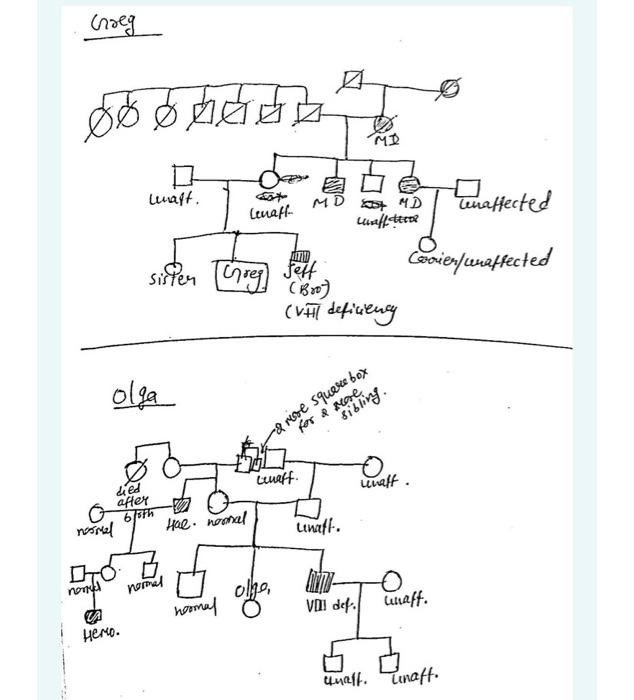 Greg
MD
Unaff.
Unaff.
MD
Unaff
MD
Unaffected
Sister
Greg
Jeff
(Bro)
(VIII deficiency
Carrier/unaffected
Olga
2 more square box
for 2 more
sibling.
Unaff.
Unaff.
died
after
birth
normal
Hae.
normal
Unaff.
normal
normal
normal
Olga,
VIII def.
Unaff.
Hemo.
Unaff.
Unaff.